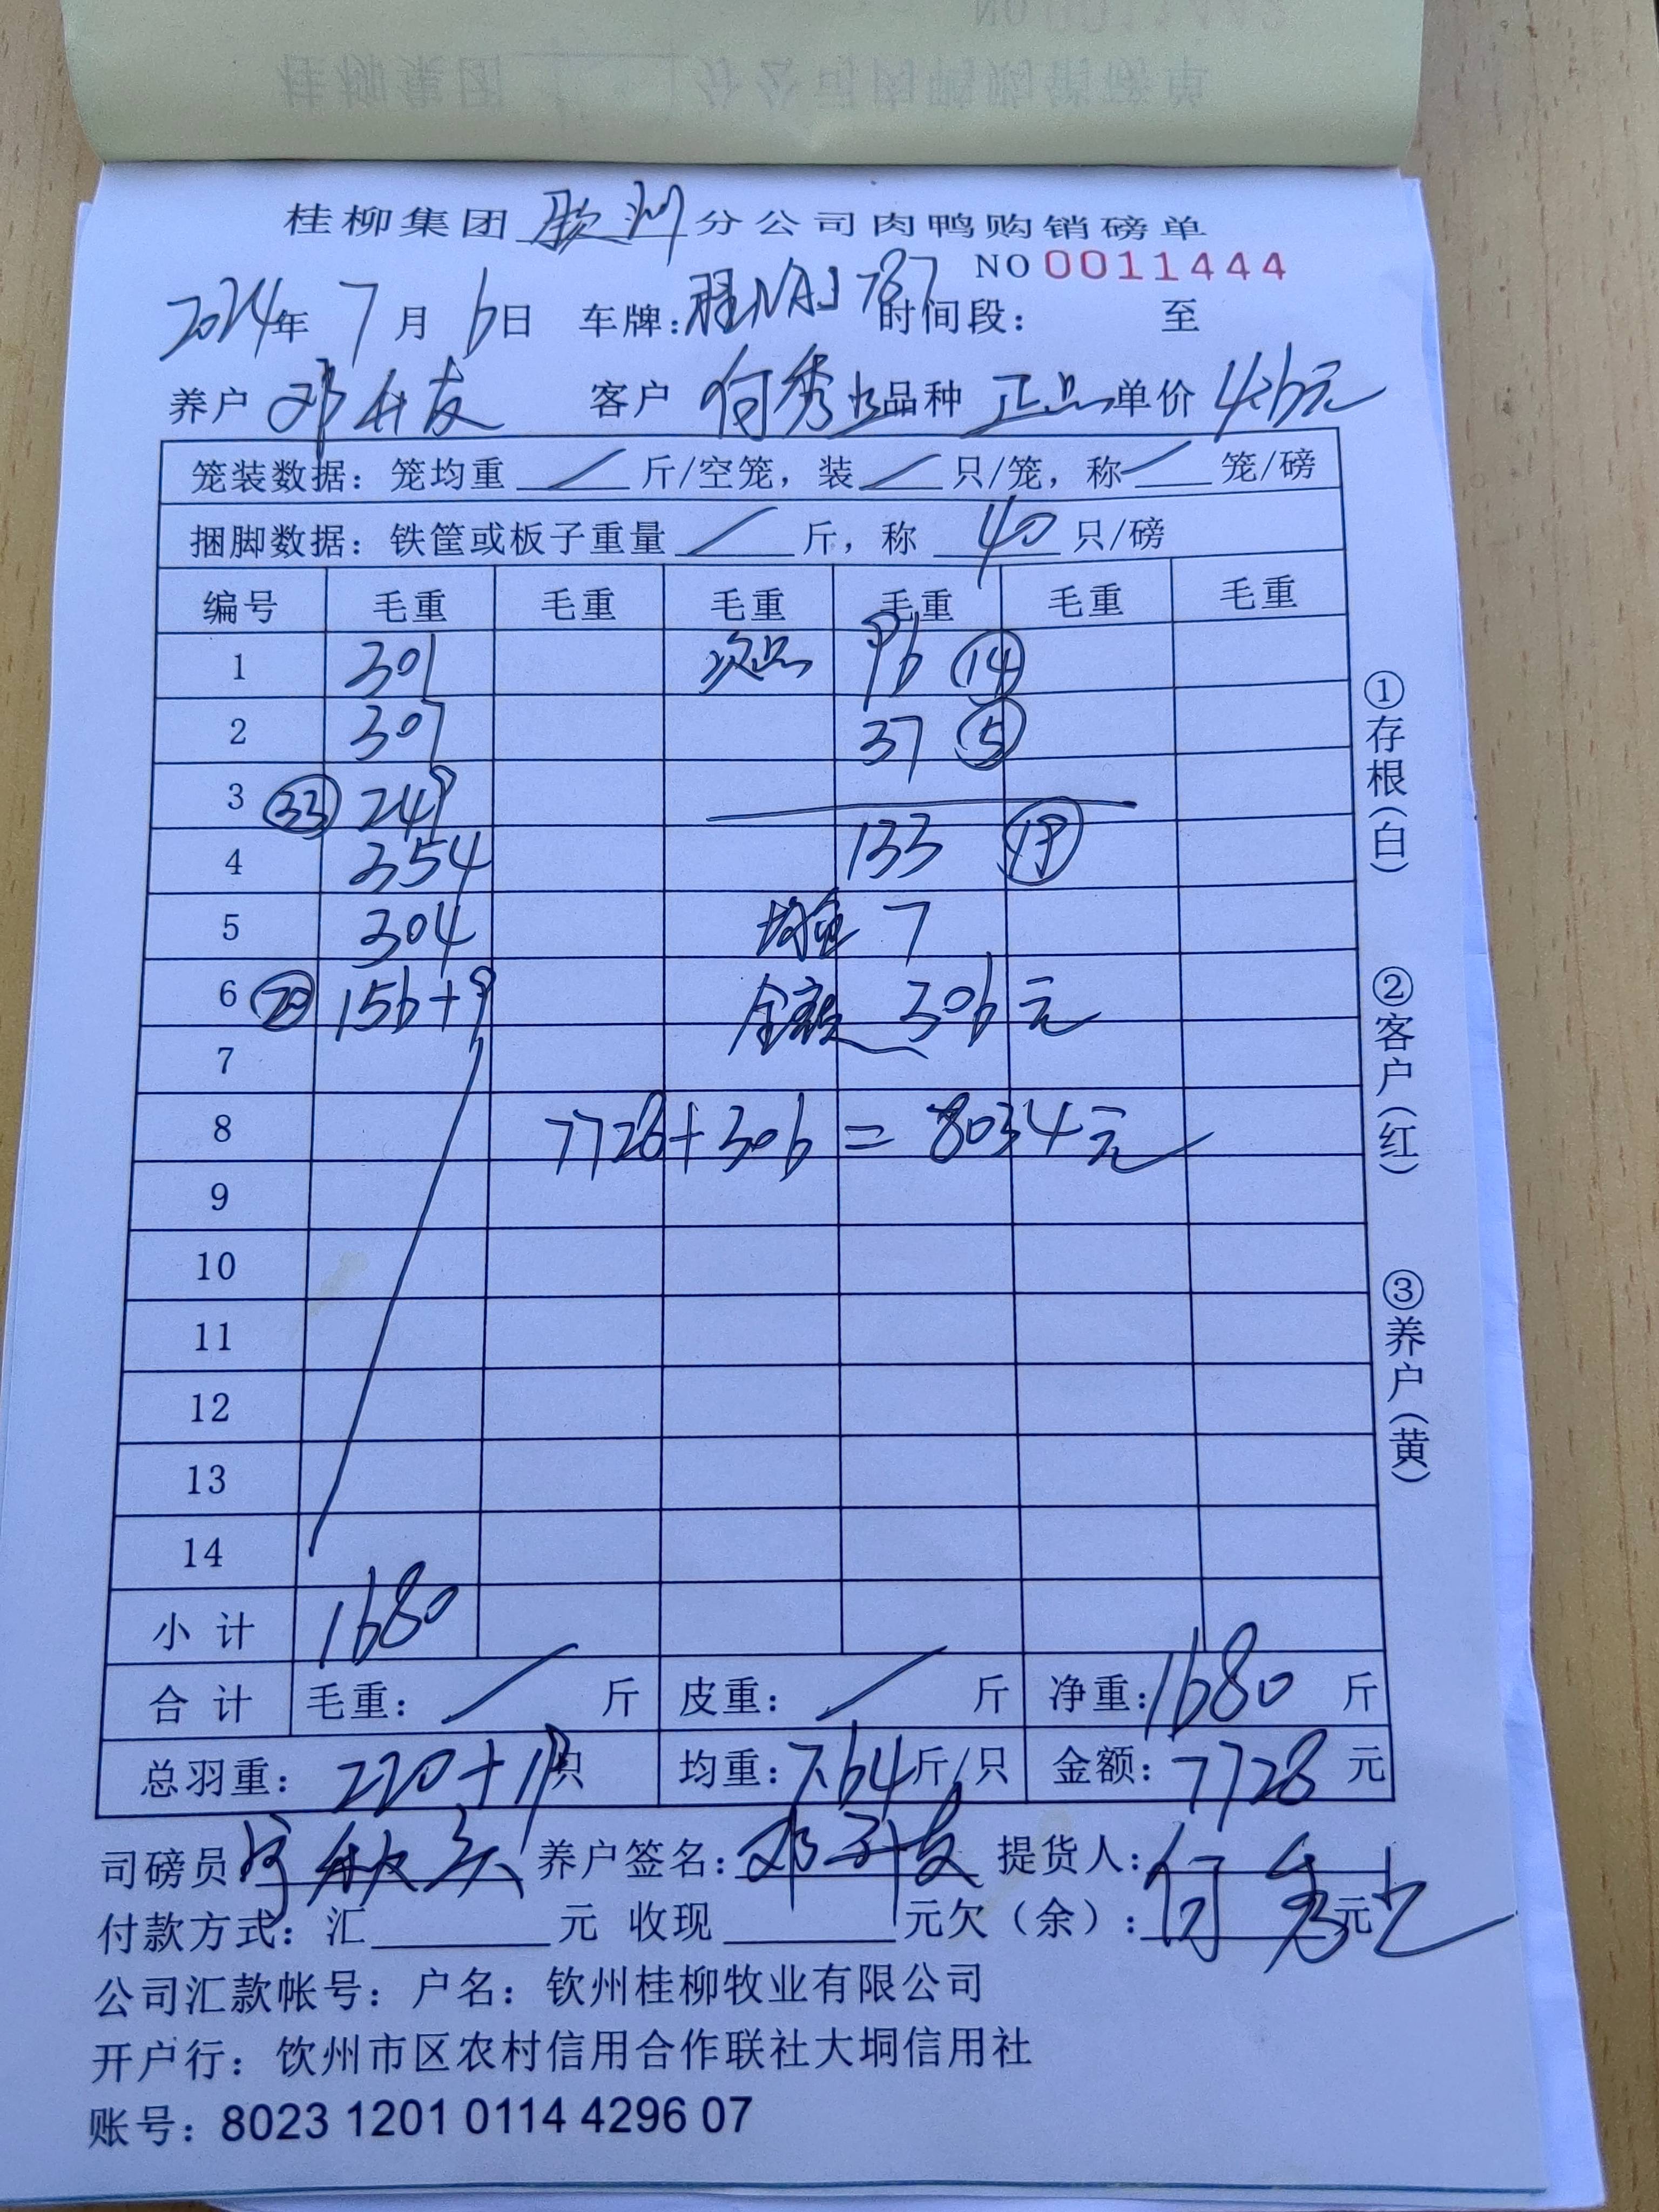 桂柳集团 钦州 分公司肉鸭购销磅单
NO 0011444
2024年 7月 6日 车牌: 桂NAJ787 时间段: 至
养户 邓升友 客户 何秀 品种 正品 单价 4.6元
笼装数据: 笼均重 / 斤/空笼, 装 / 只/笼, 称 / 笼/磅
捆脚数据: 铁筐或板子重量 / 斤, 称 40 只/磅
编号 毛重 毛重 毛重 毛重 毛重 毛重
1 301 次品 96 ⑭
2 307 37 ⑤
3 ㉝ 249
4 354 133 ⑲
5 304 均重 7
6 ⑳ 156+9 金额 306元
7
8 7728+306=8034元
9
10
11
12
13
14
小计 1680
合计 毛重: / 斤 皮重: / 斤 净重: 1680 斤
总羽重: 220+19只 均重: 7.64斤/只 金额: 7728 元
司磅员 养户签名: 邓升友 提货人: 何秀
付款方式: 汇 元 收现 元欠(余): 元
公司汇款帐号: 户名: 钦州桂柳牧业有限公司
开户行: 钦州市区农村信用合作联社大垌信用社
账号: 8023 1201 0114 4296 07
①存根(白)
②客户(红)
③养户(黄)